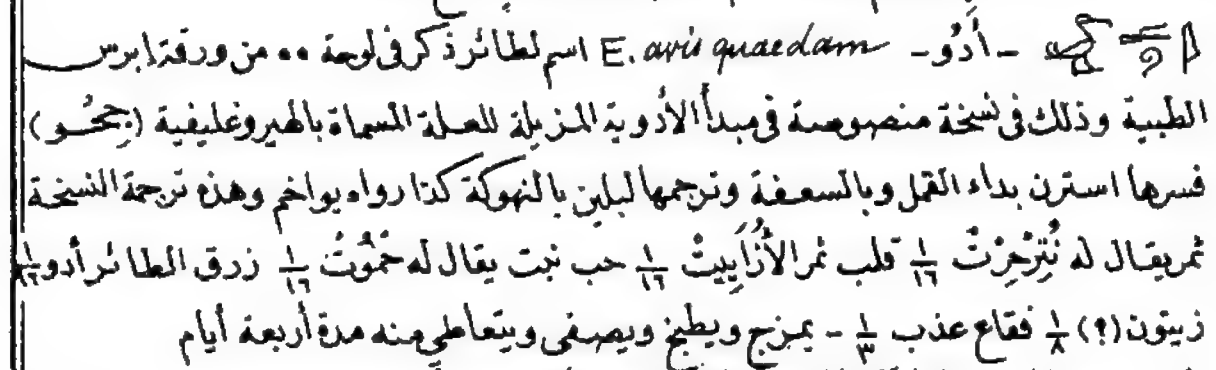 - أَدُو - E. avis quaedam اسم لطائر ذكر في لوحة ٥٥ من ورقة ابرس
الطبية وذلك في نسخة منصوصة في مبدأ الأدوية المزيلة للعلة المسماة بالهيروغليفية (جحُو)
فسرها استرن بداء القمل وبالسعفة وترجمها لبلين بالنهوكة كذا رواه يواخم وهذه ترجمة النسخة
ثمر يقال له نُتِرْحِرْتْ ١/١٦ قلب ثمر الأُزَاِبِيتْ ١/١٦ حب نبت يقال له حَمُوُتْ ١/١٦ زرق الطائر أدو ١/١٦
زيتون (؟) ١/٨ فقاع عذب ١/٣ - يمزج ويطبخ ويصفى ويتعاطى منه مدة أربعة أيام